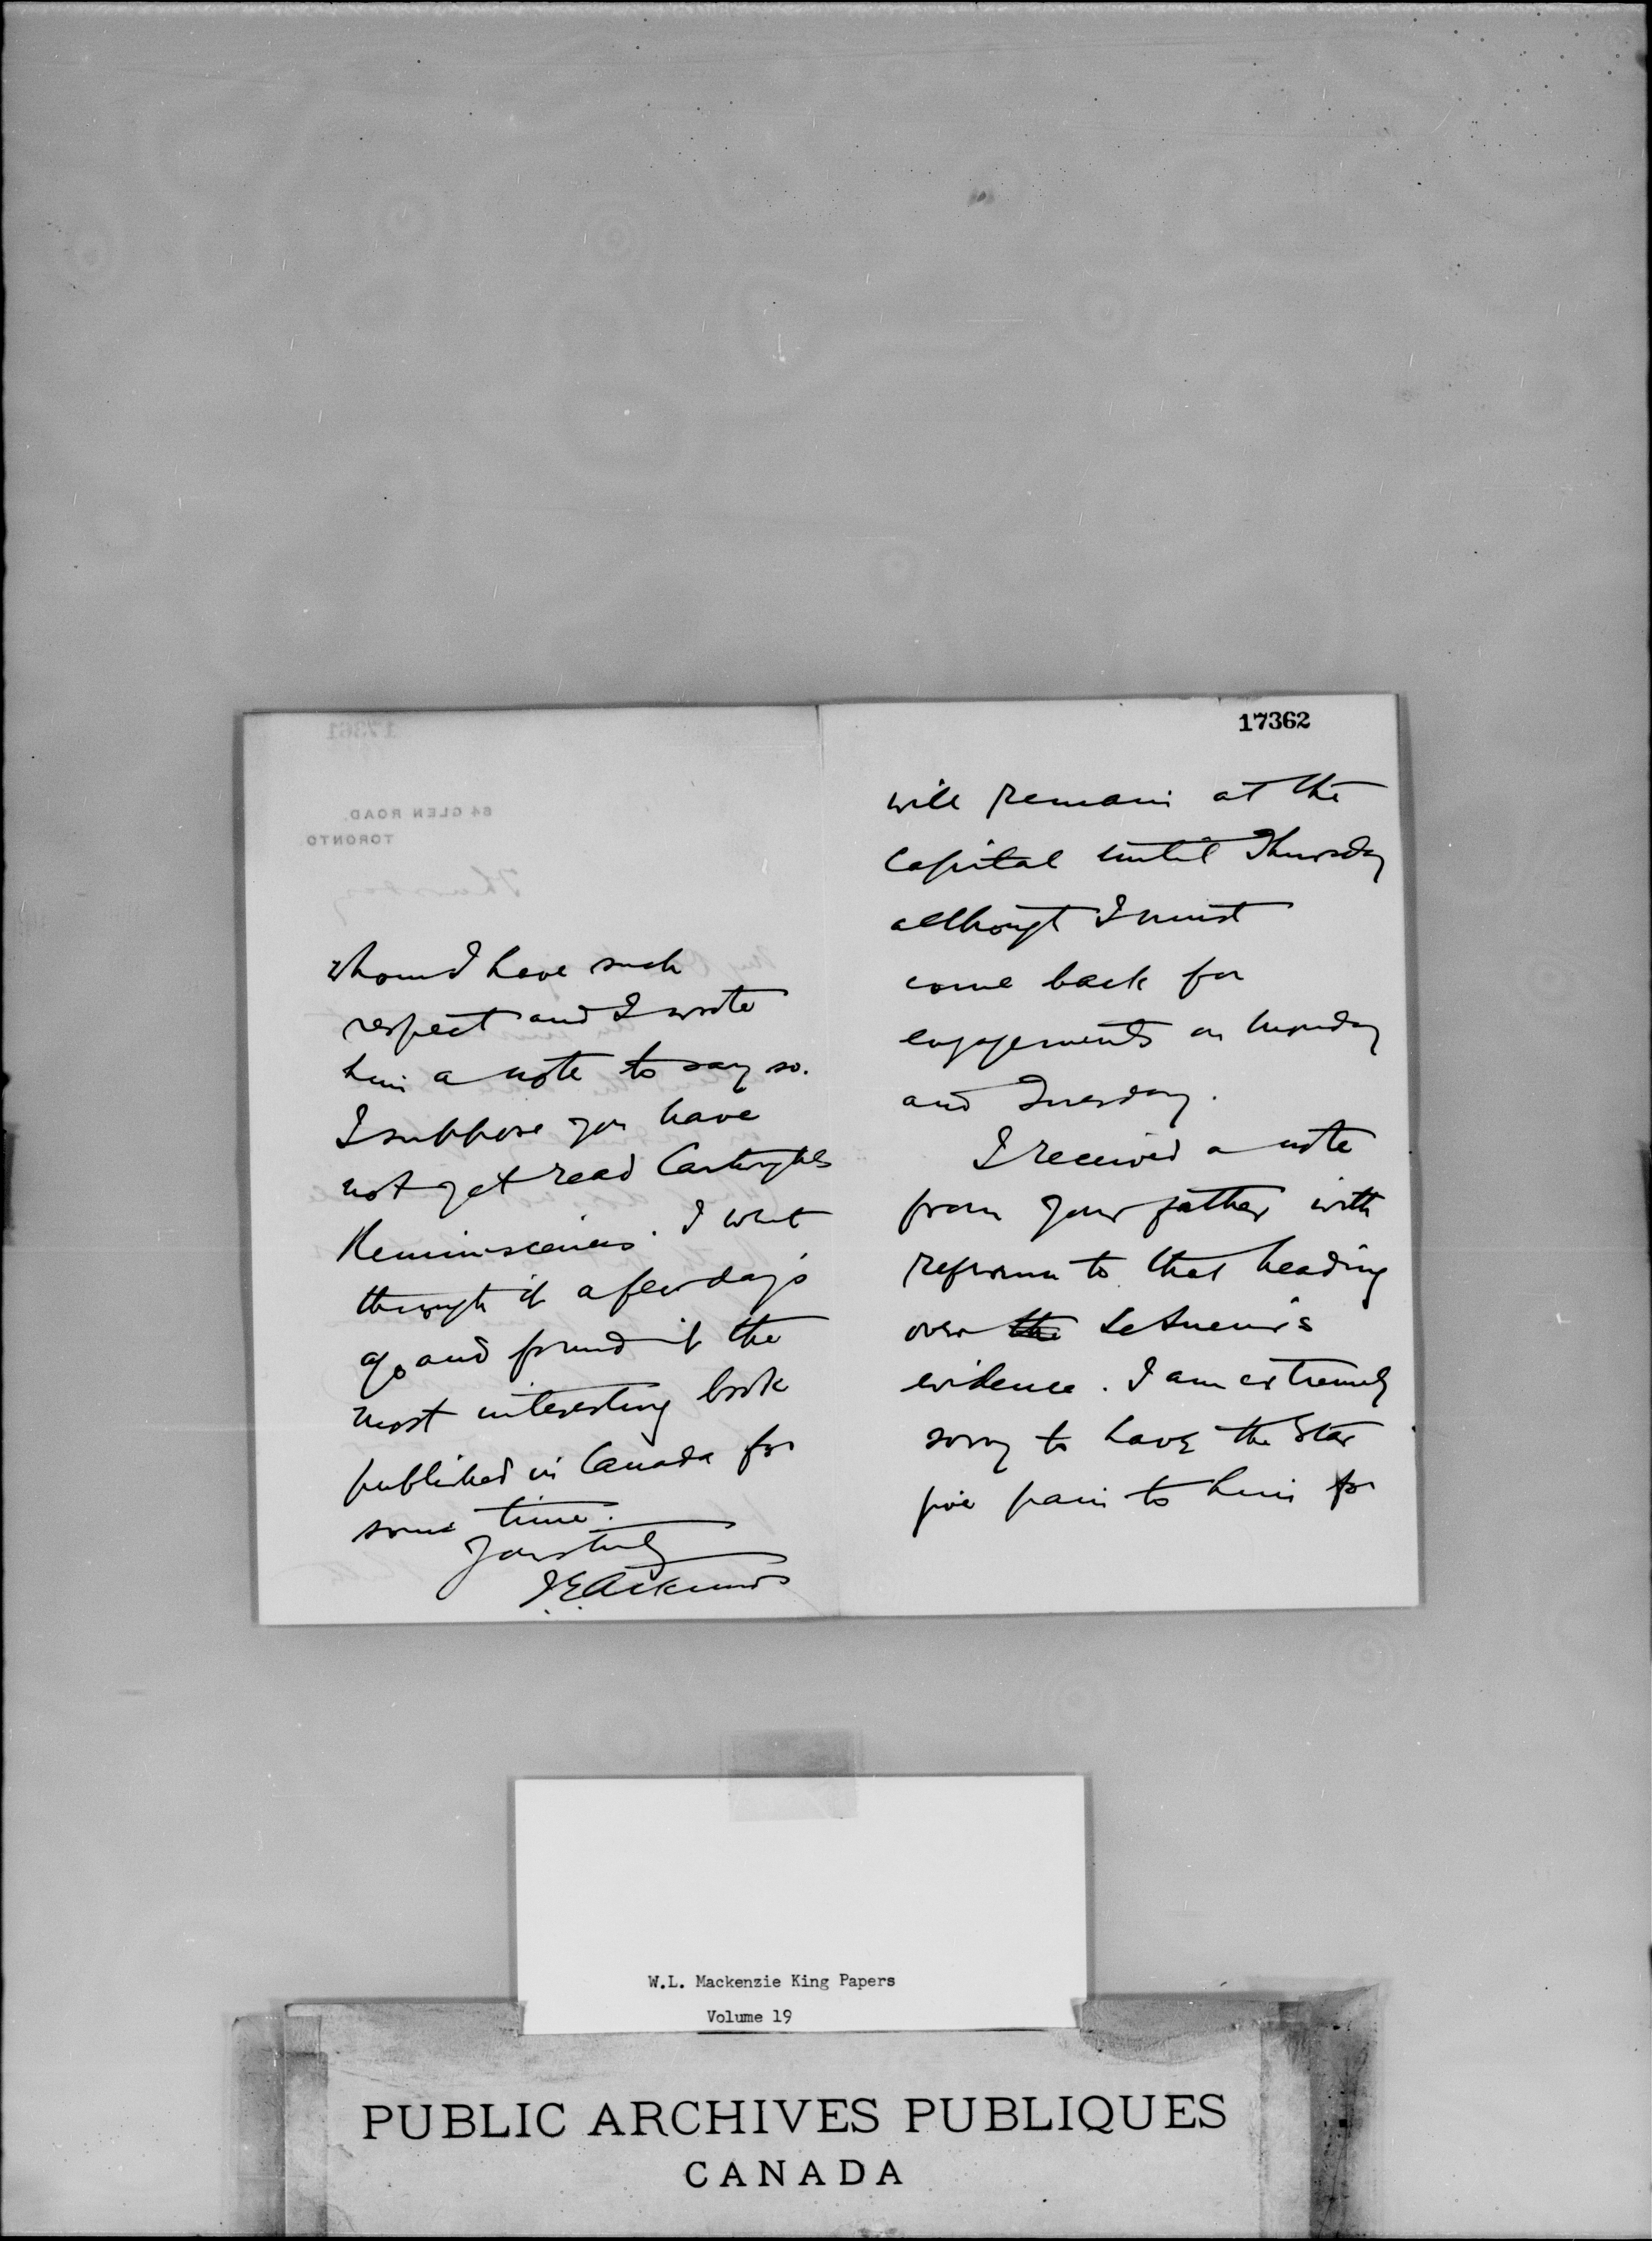 17362
will remain at the
Capital until Thursday
although I must
come back for
engagements on Monday
and Tuesday.
I received a note
from your father with
reference to that heading
over the LeSueur's
evidence. I am extremely
sorry to have the Star
give pain to him for
whom I have such
respect and I wrote
him a note to say so.
I suppose you have
not yet read Cartwright's
Reminiscences. I went
through it a few days
ago and found it the
most interesting book
published in Canada for
some time.
Yours truly
J.E. Atkinson
W.L. Mackenzie King Papers
Volume 19
PUBLIC ARCHIVES PUBLIQUES
CANADA